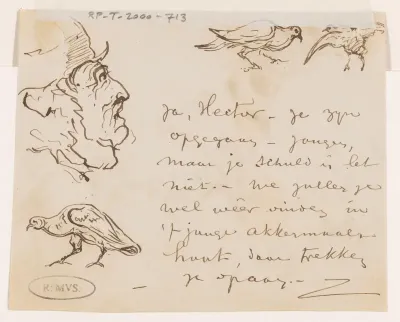 RP-T-2000-713
Ja, Hector – ze zyn
opgegaan – jongen,
maar je schuld is het
niet. – We zullen ze
wel wéér vinden in
't jonge akkermaals
hout, daar trekken
ze op aan. –
R: MVS.